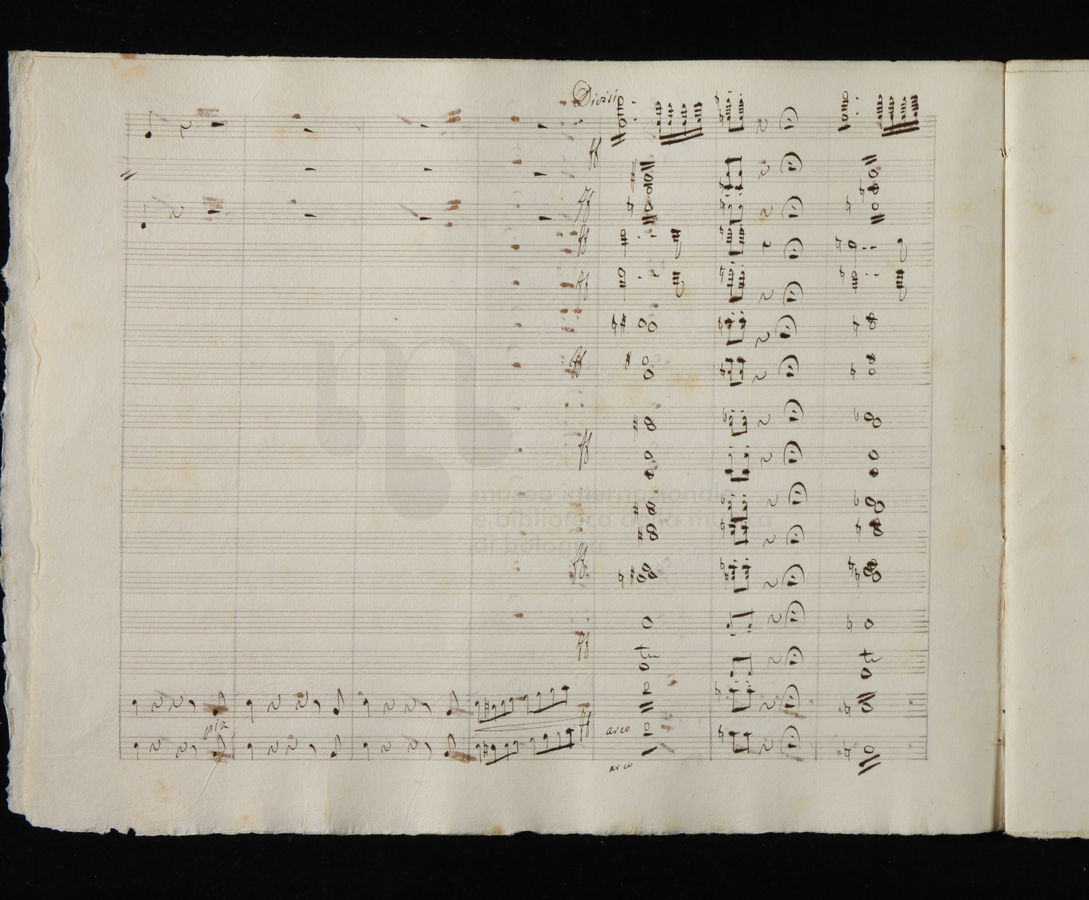 Divisi
ff
ff
ff
ff
ff
ff
museo internazionale
e biblioteca della musica
di bologna
ff
ff
tr
tr
ff
arco
arco